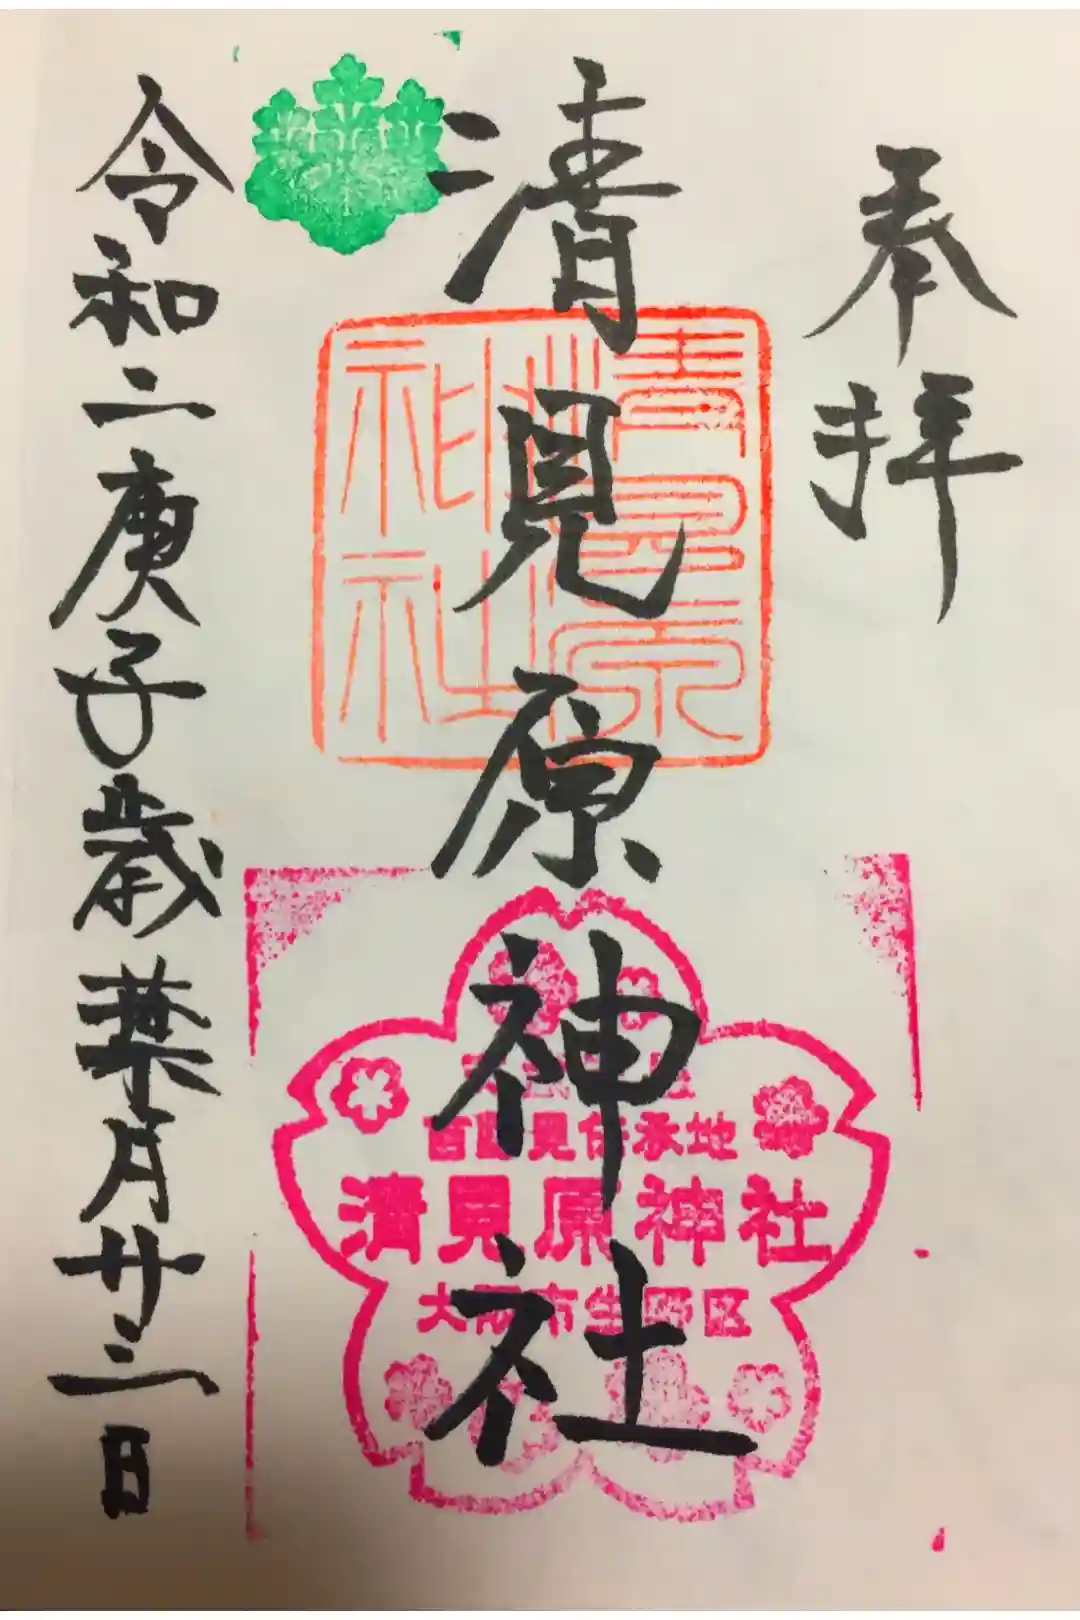 奉拝
清見原神社
清見原
神社
伝承地
清見原神社
大阪市生野区
令和二庚子歳葉月廿三日